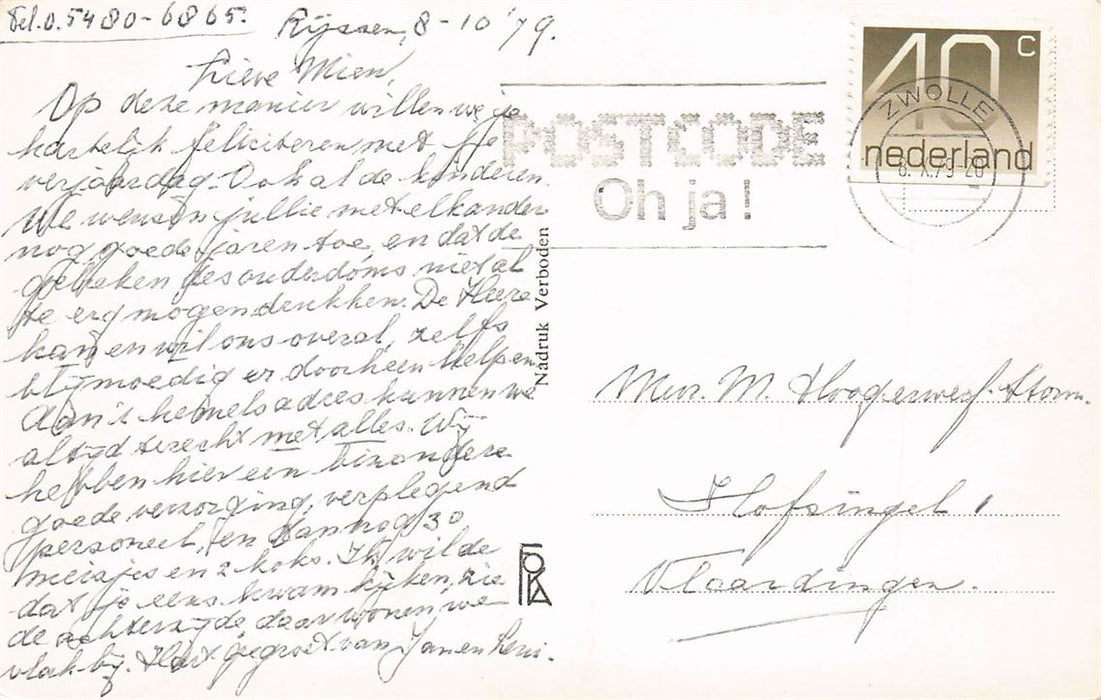 Tel. 0.5480-6865.
Rijssen, 8-10 '79.
Lieve Mien,
Op deze manier willen we je
hartelijk feliciteren met je
verjaardag. Ook al de kinderen.
We wensen jullie met elkander
nog goede jaren toe, en dat de
gebreken des ouderdoms niet al
te erg mogen drukken. De Heere
kan en wil ons overal, zelfs
blijmoedig er doorheen helpen
Aan 't hemels adres kunnen we
altijd terecht met alles. Wij
hebben hier een bizondere
goede verzorging, verplegend
personeel, en dan nog 30
meisjes en 2 koks. Ik wilde
dat je eens kwam kijken, zie
de achterzijde daar wonen we
vlak bij. Hart. gegroet van Jan en Leni.
POSTCODE
Oh ja!
40 c
nederland
ZWOLLE
8.X.79 20
Nadruk Verboden
FOKA
Mevr. M. Hoogerwerf-Storm.
Hofsingel 1
Vlaardingen.